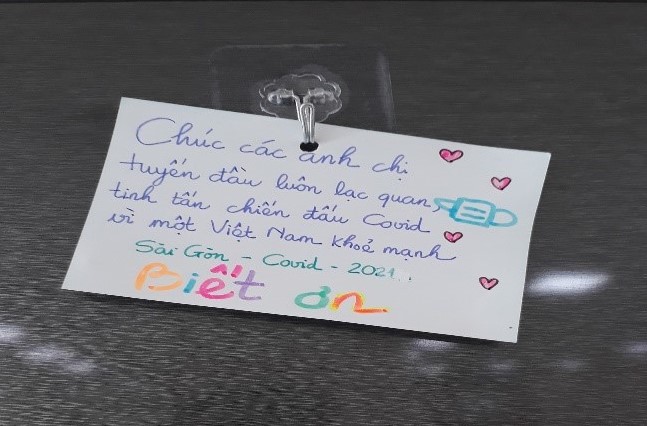 Chúc các anh chị
tuyến đầu luôn lạc quan,
tinh tấn chiến đấu Covid
vì một Việt Nam khoẻ mạnh
Sài Gòn - Covid - 2021..
Biết ơn